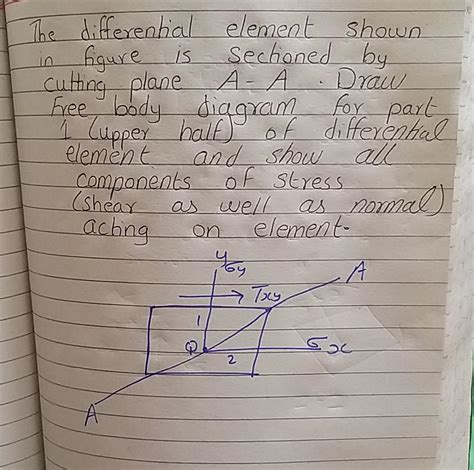 The differential element shown
in figure is Sectioned by
cutting plane A-A . Draw
Free body diagram for part
1 (upper half) of differential
element and show all
components of stress
(shear as well as normal)
acting on element.
y
σy
A
τxy
1
Q
σx
2
A